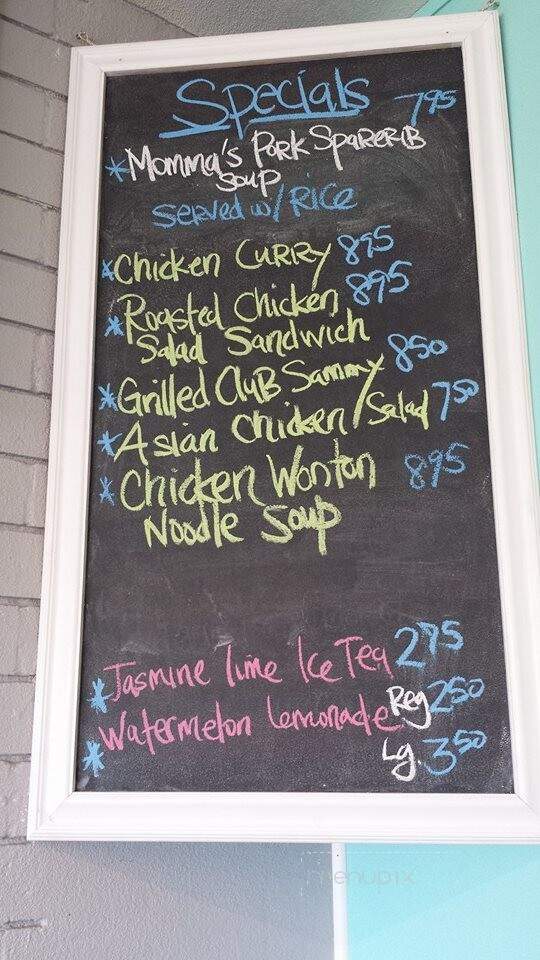 Specials 795
*Momma's Pork Sparerib
Soup
served w/ Rice
*Chicken Curry 895
*Roasted Chicken 895
Salad Sandwich
*Grilled Club Sammy 850
*Asian Chicken/Salad 750
*Chicken Wonton 895
Noodle Soup
*Jasmine lime Ice Tea 275
*Watermelon Lemonade Reg 250
Lg. 350
menupix